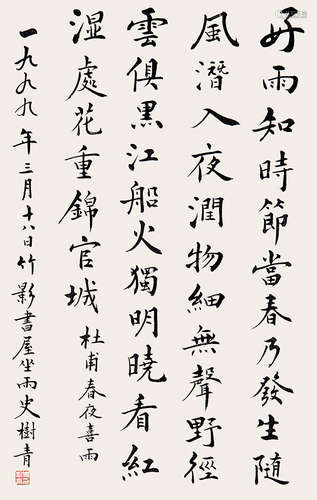 好雨知時節當春乃發生隨
風潛入夜潤物細無聲野徑
雲俱黑江船火獨明曉看紅
湿處花重錦官城 杜甫春夜喜雨
一九九九年三月十八日竹影書屋坐雨史樹青